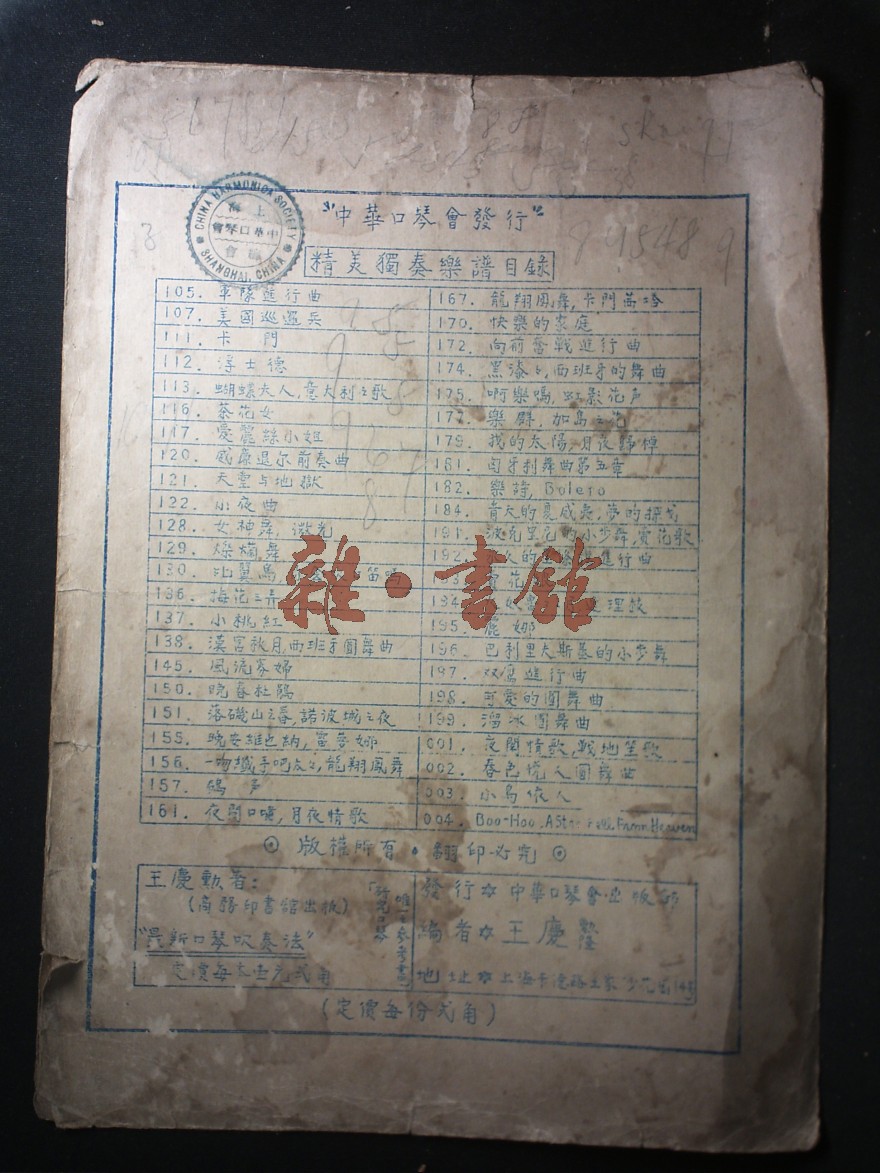 CHINA HARMONICA SOCIETY
上海
中華口琴會
SHANGHAI, CHINA
"中華口琴會發行"
精美獨奏樂譜目錄
105. 軍隊進行曲
107. 美國巡邏兵
111. 卡門
112. 浮士德
113. 蝴蝶夫人,意大利之歌
116. 茶花女
117. 愛麗絲小姐
120. 威廉退尔前奏曲
121. 天堂与地獄
122. 小夜曲
128. 女神舞,微光
129. 燦爛舞
130. 比翼鳥,
136. 梅花三弄
137. 小桃紅
138. 漢宮秋月,西班牙圓舞曲
145. 風流寡婦
150. 晚春杜鵑
151. 落磯山之春,諾波城之夜
155. 晚安維也納,蜜麥娜
156. 一吻撼手吧夫人,龍翔鳳舞
157. 鴿声
161. 夜間口嘯,月夜情歌
167. 龍翔鳳舞,卡門茜塔
170. 快樂的家庭
172. 向前奮戰進行曲
174. 黑漆々,西班牙的舞曲
175. 啊樂嗚,虹影花声
177. 樂闘,加島之花
179. 我的太陽,月夜歸棹
181. 匈牙利舞曲第五章
182. 樂詩,Bolero
184. 青天的夏威夷,夢的探戈
191. 波克里尼的小步舞,賣花歌
192. 進行曲
194.
195. 麗娜
196. 巴利里夫斯基的小步舞
197. 双鷹進行曲
198. 可愛的圓舞曲
199. 溜冰圓舞曲
001. 夜間情歌,戰地笙歌
002. 春色惱人圓舞曲
003. 小鳥依人
004. Boo-Hoo, A Star Fell From Heaven
版權所有・翻印必究
王慶勳著:
(商務印書館出版)
"最新口琴吹奏法"
定價每本壹元弍角
「研究口琴
唯一參考書」
發行☆中華口琴會出版部
編者☆王慶勳隆
地址☆上海卡德路王家沙花園
(定價每份弍角)
雜・書館